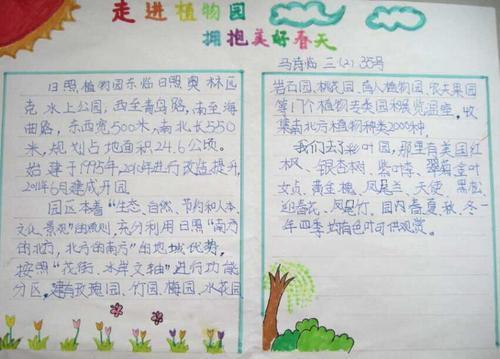 走进植物园
拥抱美好春天
马诗临 三(2) 35号
日照植物园东临日照奥林匹
克水上公园,西至青岛路,南至海
曲路,东西宽500米,南北长550
米,规划占地面积24.6公顷。
始建于1995年,2010年进行改造提升,
2011年6月建成开园
园区本着“生态、自然、节约和人本
文化、景观”的原则,充分利用日照“南方
的北方,北方的南方”的地域优势,
按照“花街、水岸文轴”进行功能
分区,建有玫瑰园、竹园、梅园、水花园
岩石园、桃花园、盲人植物园、农夫果园
等17个植物专类园和展览温室,收
集南北方植物种类2000种。
我们去了彩叶园,那里有美国红
枫、银杏树、紫叶李、
女贞、黄金槐、凤尾兰、天使、黑松、
迎春花、凤尾竹。园内春、夏、秋、冬一
年四季均有色叶可供观赏。